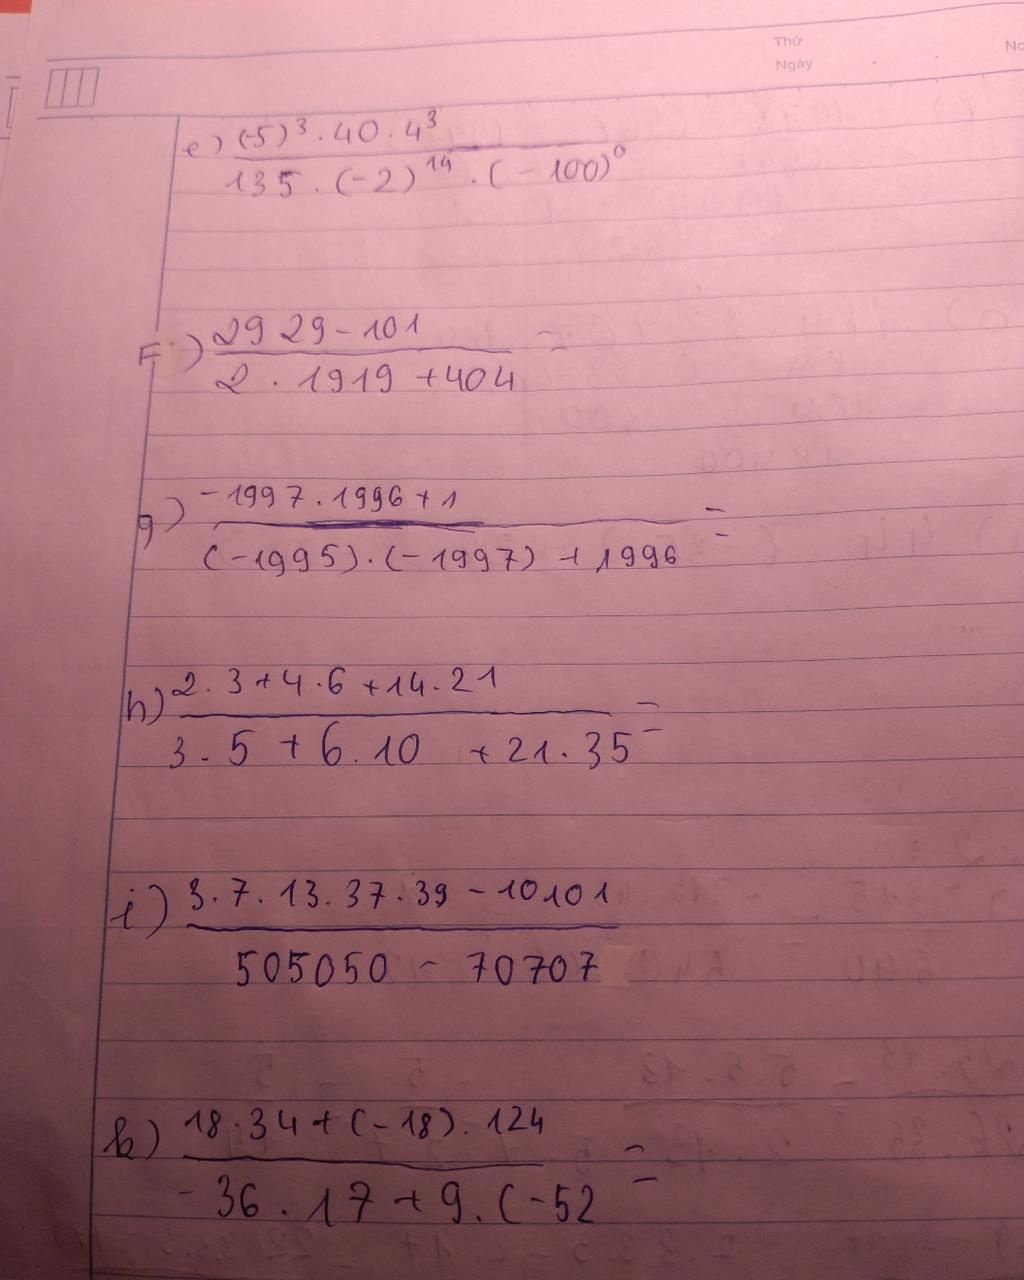 Thứ
Ngày
No
e) (-5)³ . 40 . 4³
135 . (-2)¹⁴ . (-100)⁰
F) 2929 - 101 =
2 . 1919 + 404
g) -1997 . 1996 + 1 =
(-1995) . (-1997) + 1996
h) 2 . 3 + 4 . 6 + 14 . 21 =
3 . 5 + 6 . 10 + 21 . 35
i) 3 . 7 . 13 . 37 . 39 - 10101
505050 - 70707
k) 18 . 34 + (-18) . 124 =
-36 . 17 + 9 . (-52